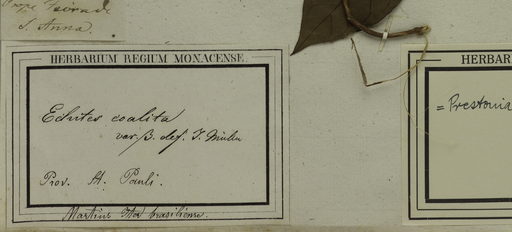 S. Anna.
HERBARIUM REGIUM MONACENSE.
Echites coalita
var. β. def. J. Müller
Prov. St. Pauli.
Martius Iter brasiliense.
HERBARI
= Prestonia